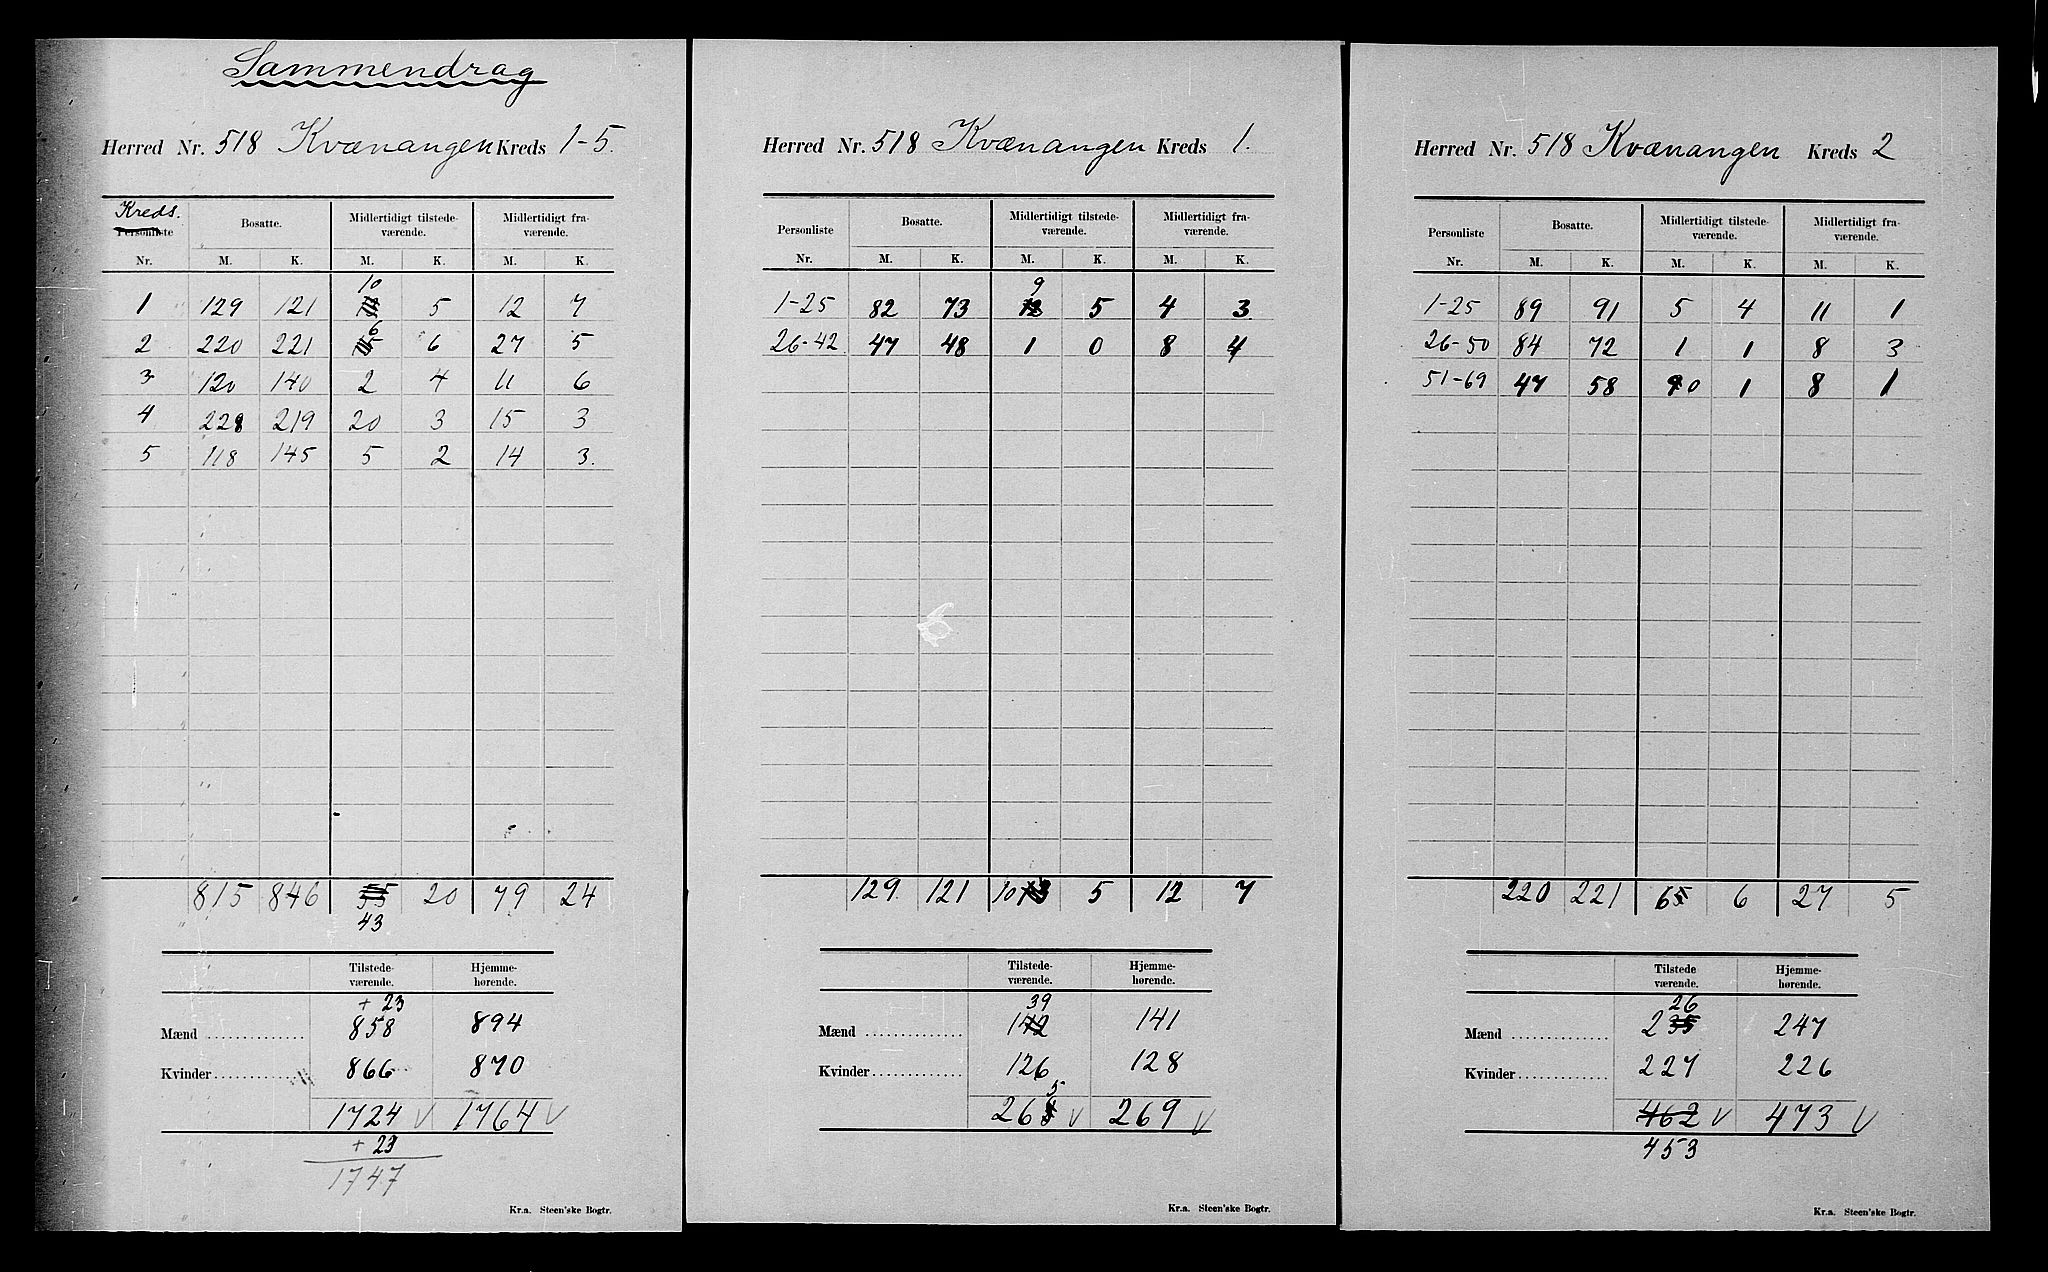 Sammendrag
Herred Nr. 518 Kvænangen Kreds 1-5.
Kreds.
Personliste Bosatte. Midlertidigt tilstede- Midlertidigt fra-
værende. værende.
Nr. M. K. M. K. M. K.
10
1 129 121 5 12 7
6
2 220 221 15 6 27 5
3 120 140 2 4 11 6
4 228 219 20 3 15 3
5 118 145 5 2 14 3.
815 846 55 20 79 24
43
Tilstede- Hjemme-
værende. hørende.
+ 23
Mænd 858 894
Kvinder 866 870
1724 V 1764 V
+ 23
1747
Kr.a. Steen'ske Bogtr.
Herred Nr. 518 Kvænangen Kreds 1.
Personliste Bosatte. Midlertidigt tilstede- Midlertidigt fra-
værende. værende.
Nr. M. K. M. K. M. K.
9
1-25 82 73 12 5 4 3.
26-42 47 48 1 0 8 4
129. 121 10 13 5 12 7
Tilstede- Hjemme-
værende. hørende.
39
Mænd 142 141
Kvinder 126 128
5
268 V 269 V
Kr.a. Steen'ske Bogtr.
Herred Nr. 518 Kvænangen Kreds 2
Personliste Bosatte. Midlertidigt tilstede- Midlertidigt fra-
værende. værende.
Nr. M. K. M. K. M. K.
1-25 89 91 5 4 11 1
26-50 84 72 1 1 8 3
51-69 47 58 0 1 8 1
220 221 6 6 27 5
Tilstede Hjemme-
værende. hørende.
26
Mænd 235 247
Kvinder 227 226
462 V 473 V
453
Kr.a. Steen'ske Bogtr.